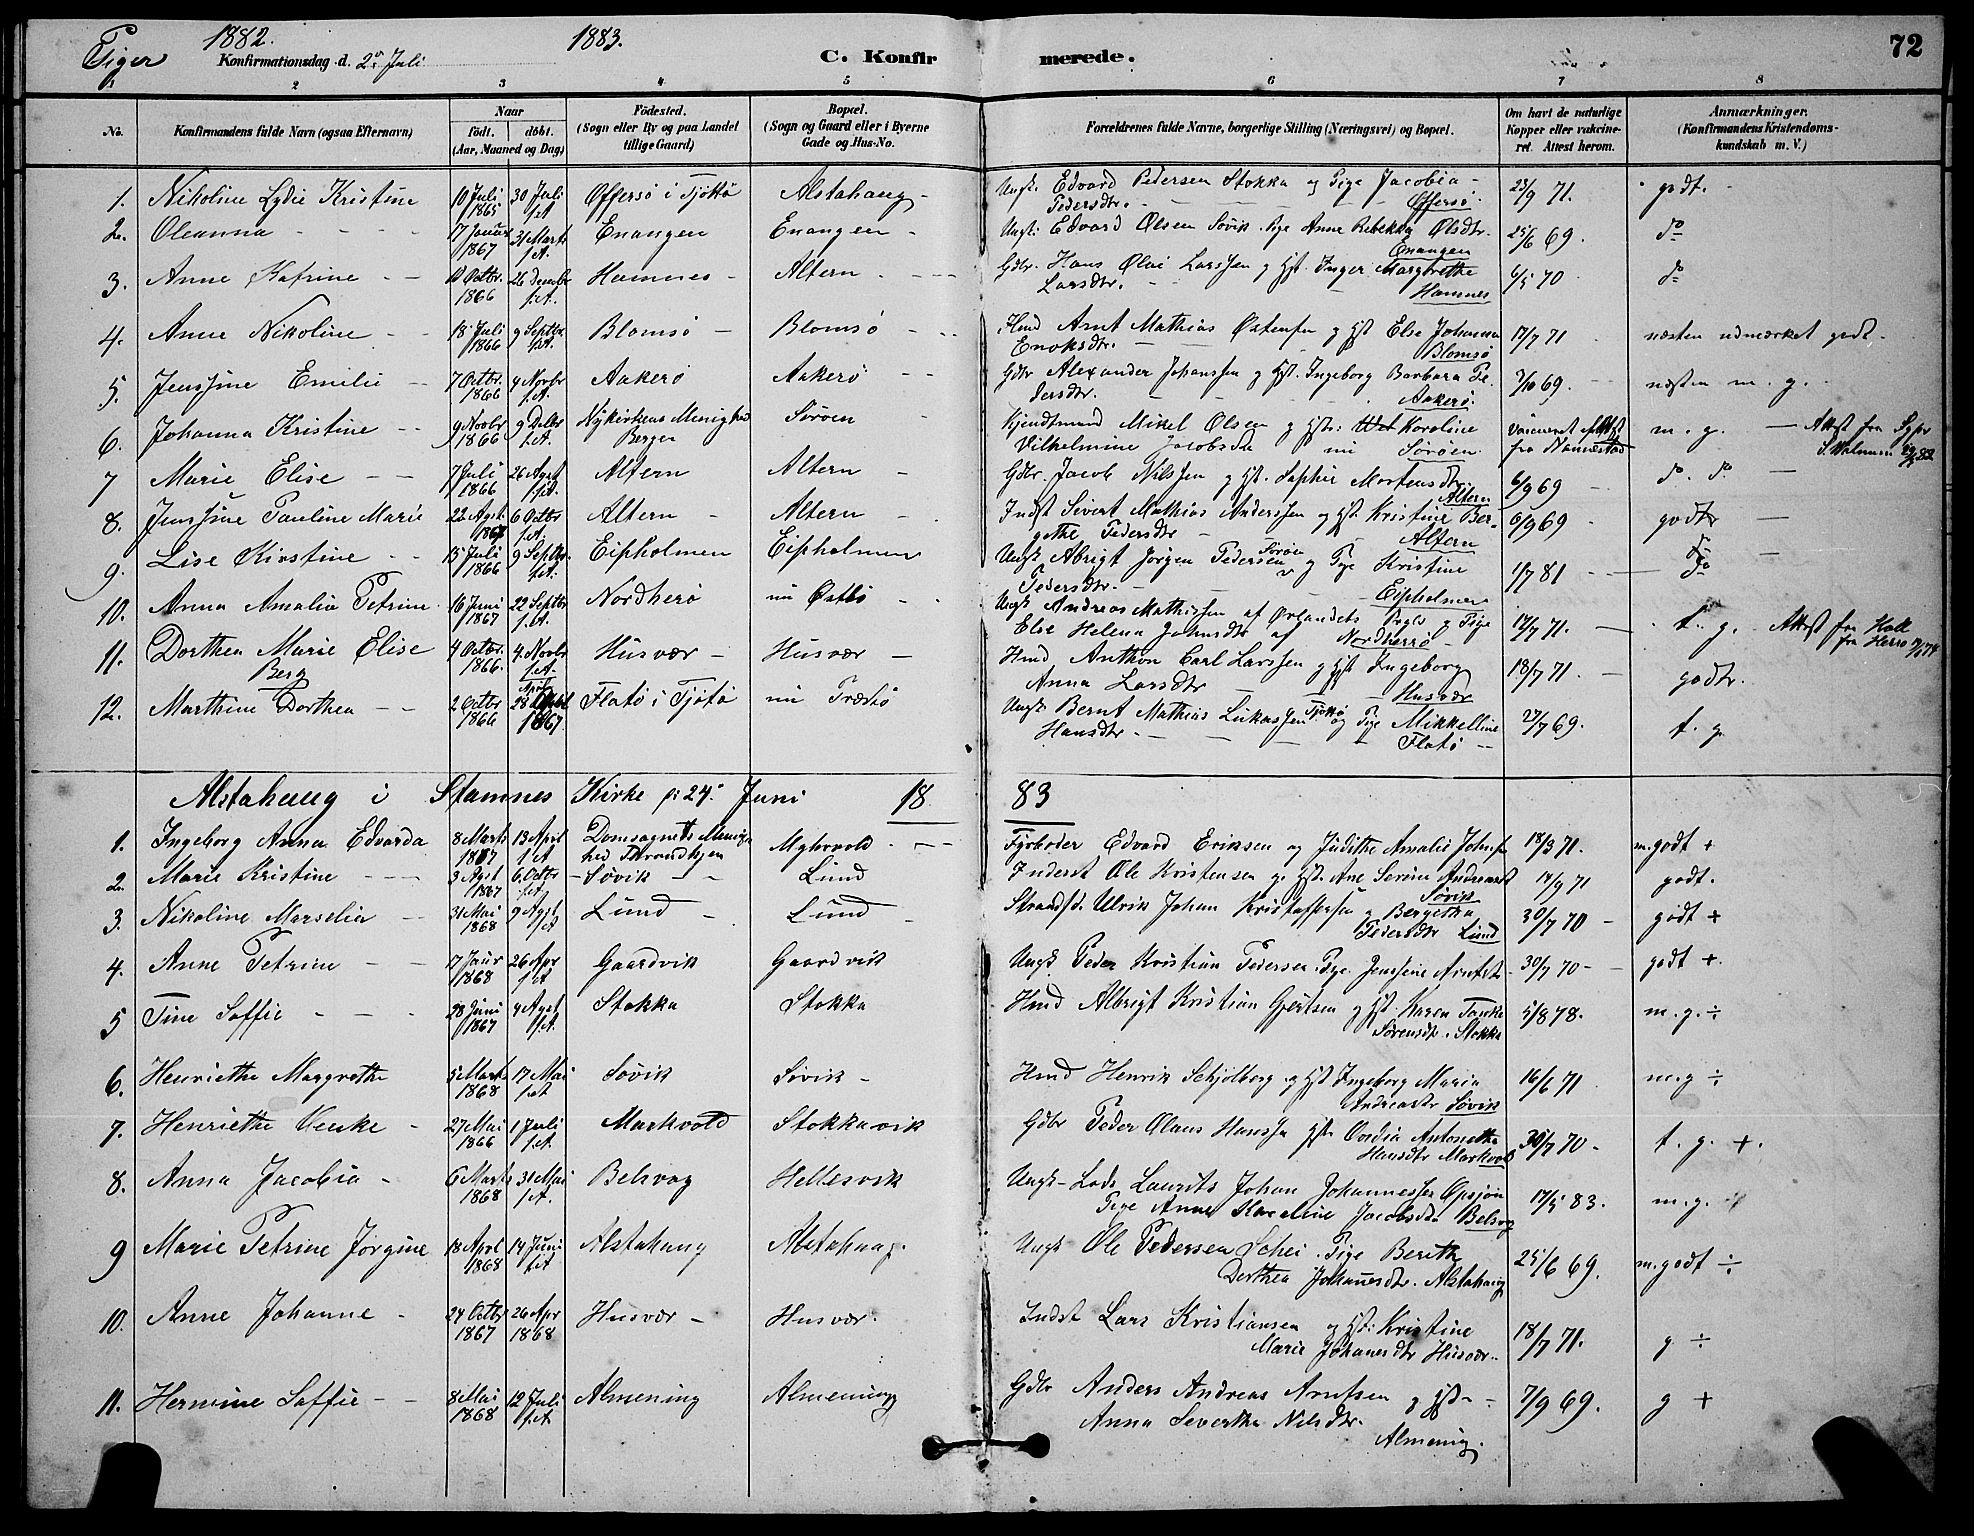 Piger 1882. 1883. C. Konfirmerede. 72
Konfirmationsdag d. 2. Juli
1 2 3 4 5 6 7 8
No. Konfirmandens fulde Navn (ogsaa Efternavn) Naar født. døbt. (Aar, Maaned og Dag) Fødested. (Sogn eller By og paa Landet tillige Gaard) Bopæl. (Sogn og Gaard eller i Byerne Gade og Hus-No. Forældrenes fulde Navne, borgerlige Stilling (Næringsvei) og Bopæl. Om havt de naturlige Kopper eller vakcineret. Attest herom. Anmærkninger. (Konfirmandens Kristendomskundskab m. V.)
1. Nikoline Lydie Kristine 10 Juli 1865 30 Juli s.A. Offersø i Tjøttø Alstahaug Ungk. Edvard Pedersen Stokka og Pige Jacobia Pedersdtr. Offersø. 23/9 71. godt.
2. Oleanna 17 Januar 1867 31 Marts s.A. Enangen Enangen Ungk. Edvard Olsen Søvik. Pige Anne Rebekka Olsdtr. Enangen 25/6 69. do
3. Anne Katrine 10 Octbr. 1866 26 Decembr s.A. Hamnes Altern Gdbr. Hans Olai Larssen og Hst. Inger Margrethe Larsdtr. Hamnes 6/5 70 do
4. Anne Nikoline 18 Juli 1866 9 Septbr s.A. Blomsø Blomsø Hmd Arnt Mathias Østensen og Hst Else Johanna Enoksdtr. Blomsø 12/7 71 næsten udmærket godt.
5. Jenssine Emilie 7 Octbr. 1866 4 Novbr s.A. Aakerø Aakerø Gdbr Alexander Johanssen og Hst. Ingeborg Barbara Pedersdtr. Aakerø. 3/10 69. næsten m. g.
6. Johanna Kristine 9 Novbr 1866 9 Decbr s.A. Nykirkens Menighed Bergen Sørøen Kjendtmand Mikel Olsen og Hst: Karoline Vilhelmine Jacobsdtr nu Sørøen. m. g. Attest fra
7 Marie Elise 7 Juli 1866 26 Agst s.A. Altern Altern Gdbr. Jacob Nilssen og Hst. Sophie Mortensdtr. Altern 6/9 69 do. do.
8. Jenssine Pauline Marie 22 Agst. 1867 6 Octbr s.A. Altern Altern Indst Sivert Mathias Anderssen og Hst Kristine Bergethe Pedersdtr Altern 6/9 69 godt
9. Lise Kirstine 15 Juli 1866 9 Septbr. s.A. Eipholmen Eipholmen Ungk Abrigt Jørgen Pedersen Sørøen og Pige Kristine Pedersdtr. Eipholmen 1/7 81 do
10. Anna Amalia Petrine 16 Juni 1867 22 Septbr s.A. Nordherø nu Østbø Ungk Andreas Mathissen af Ørlandets og Pige Else Helena Johnsdtr af Nordherrø 12/7 71. t. g. Attest fra
11. Dorthea Marie Elise Berg 4 Octbr. 1866. 4. Novbr s.A. Husvær Husvær Hmd Anthon Carl Larssen og Hst Ingeborg Anna Larsdtr Husvær 18/7 71. godt.
12. Marthine Dorthea 2 Octbr 1866 28 April 1867. Flatø i Tjøtø nu Træstø Ungk Bernt Mathias Lukassen Tjøttø og Pige Mikkelline Hansdtr Flatø 27/7 69. t. g.
Alstahaug i Stamnes Kirke på 24. Juni 1883
1. Ingeborg Anna Edvarda 8 Marts 1867 13 April s.A Domsognets Menighed Throndhjem Myhrvold Fyrbøder Edvard Eriksen og Judithe Amalie 18/3 71. m. godt +
2. Marie Kristine 3 Agst 1867 6 Octbr s.A. Søvik Lund Inderst Ole Kristensen og Hst. Ane Serine Andreasdt Søvik 14/9 71 godt.
3. Nikoline Marselia 31 Mai 1868 9 Agst s.A Lund Lund Strands. Ulrik Johan Kristoffersen og Bergetha Pedersdtr Lund 30/7 70 godt +
4. Anne Petrine 17 Janr 1868 26 Apr s.A Gaardvik Gaardvik Ungk Peder Kristian Pedersen Pige Jenssine Arntsdt 30/7 70 godt +.
5 Tine Soffie 28 Juni 1867 4 Agst s.A. Stokka Stokka Hmd Albrigt Kristian Gjertsen og Hst. Karen Tanke Sørensdt. Stokka 5/8 78. m. g. ÷
6. Henriethe Margrethe 5 Marts 1868 17 Mai s.A Søvik Søvik Hmd Henrik Schjelberg og Hst Ingeborg Maria Andreasdtr Søvik 16/6 71 m.g ÷
7. Henriethe Venke 27 Mai 1866 1 Juli s.A. Markvold Stokkavik Gdbr Peder Olaus Hanssen Hst. Ovidia Antonetta Hansdtr Markvold 30/7 70 t. g. +.
8. Anna Jacobia 6 Marts 1868 31 Mai s.A. Belsvog Hellesvik Ungk Lods Laurits Johan Johannessen Opsjøn Pige Anne Karoline Jacobsdtr Belsvog 17/5 83. m.g.
9 Marie Petrine Jørgine 18 Aprl 1868 14 Juni s.A Alstahaug Alstahaug. Ungk Ole Pedersen Schei. Pige Berith Dorthea Johannesdtr. Alstahaug 25/6 69. m. godt ÷
10. Anne Johanne 24 Octbr 1867 26 Apr 1868 Husvær Husvær. Indst Lars Kristiansen og Hst: Kristine Marie Johannesdtr Husvær. 18/7 71. g ÷
11. Hermine Soffie 8 Mai 1868 12 Juli s.A. Almening Almening Gdbr Anders Andreas Arntsen og Hst Anna Severtha Nilsdtr. Almening. 7/9 69. g +